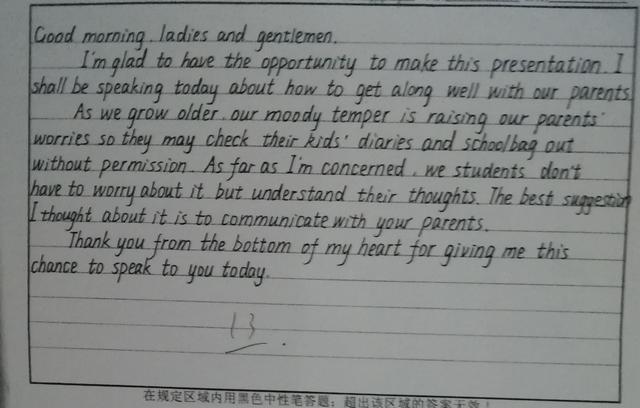 Good morning, ladies and gentlemen.
I'm glad to have the opportunity to make this presentation. I
shall be speaking today about how to get along well with our parents.
As we grow older, our moody temper is raising our parents'
worries so they may check their kids' diaries and schoolbag out
without permission. As far as I'm concerned, we students don't
have to worry about it but understand their thoughts. The best suggestion
I thought about it is to communicate with your parents.
Thank you from the bottom of my heart for giving me this
chance to speak to you today.
13
在规定区域内用黑色中性笔答题；超出该区域的答案无效！